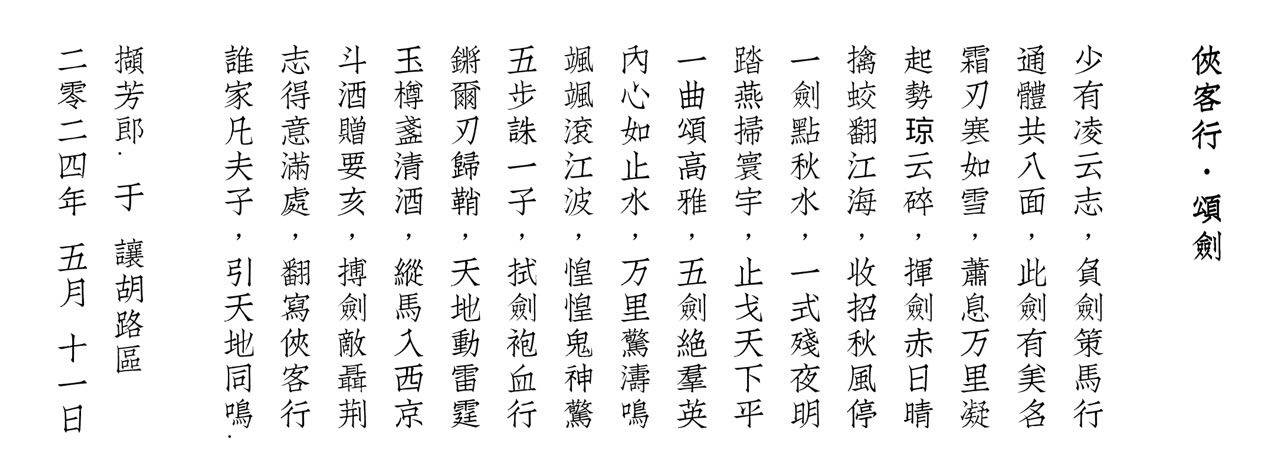 俠客行·頌劍
少有凌云志，負劍策馬行
通體共八面，此劍有美名
霜刃寒如雪，蕭息万里凝
起勢琼云碎，揮劍赤日晴
擒蛟翻江海，收招秋風停
一劍點秋水，一式殘夜明
踏燕掃寰宇，止戈天下平
一曲頌高雅，五劍絕羣英
內心如止水，万里驚濤鳴
颯颯滾江波，惶惶鬼神驚
五步誅一子，拭劍袍血行
鏘爾刃歸鞘，天地動雷霆
玉樽盞清酒，縱馬入西京
斗酒贈要亥，搏劍敵聶荆
志得意滿處，翻寫俠客行
誰家凡夫子，引天地同鳴.
擷芳郎. 于 讓胡路區
二零二四年 五月 十一日